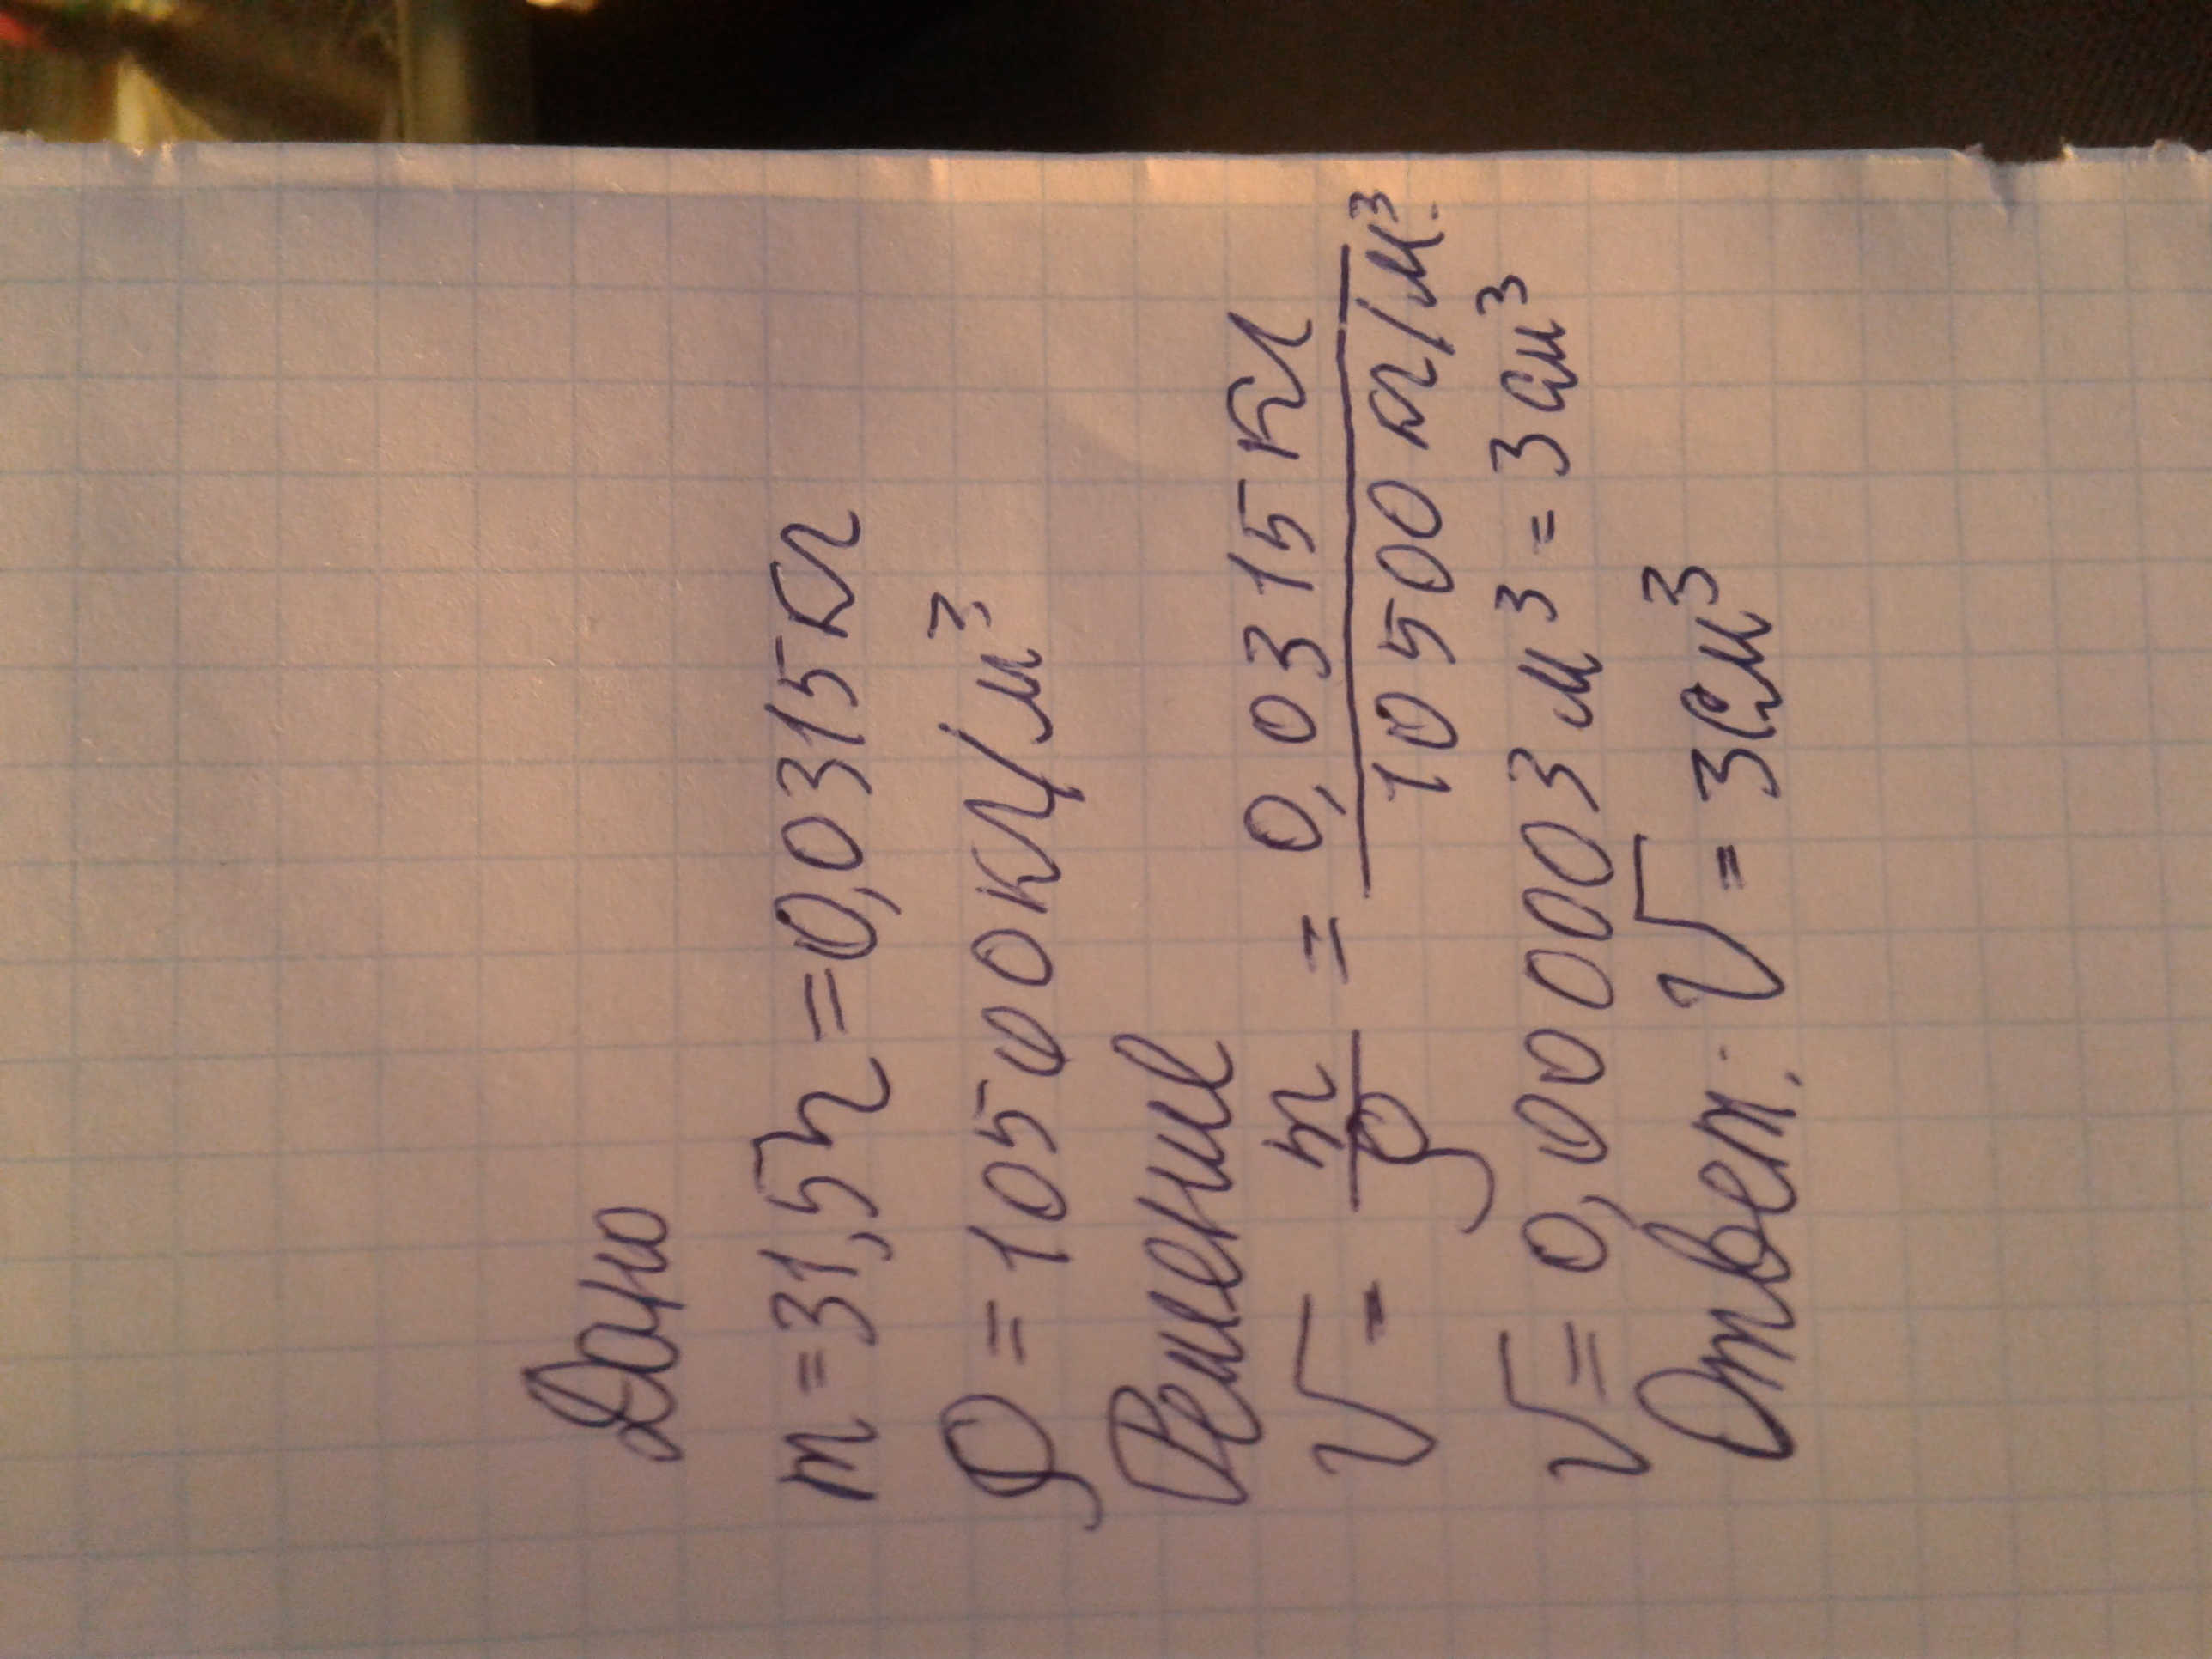 Дано
m = 31,5г = 0,0315кг
ρ = 10500кг/м³
Решение
V = m/ρ = 0,0315кг/10500кг/м³
V = 0,000003м³ = 3см³
Ответ: V = 3см³